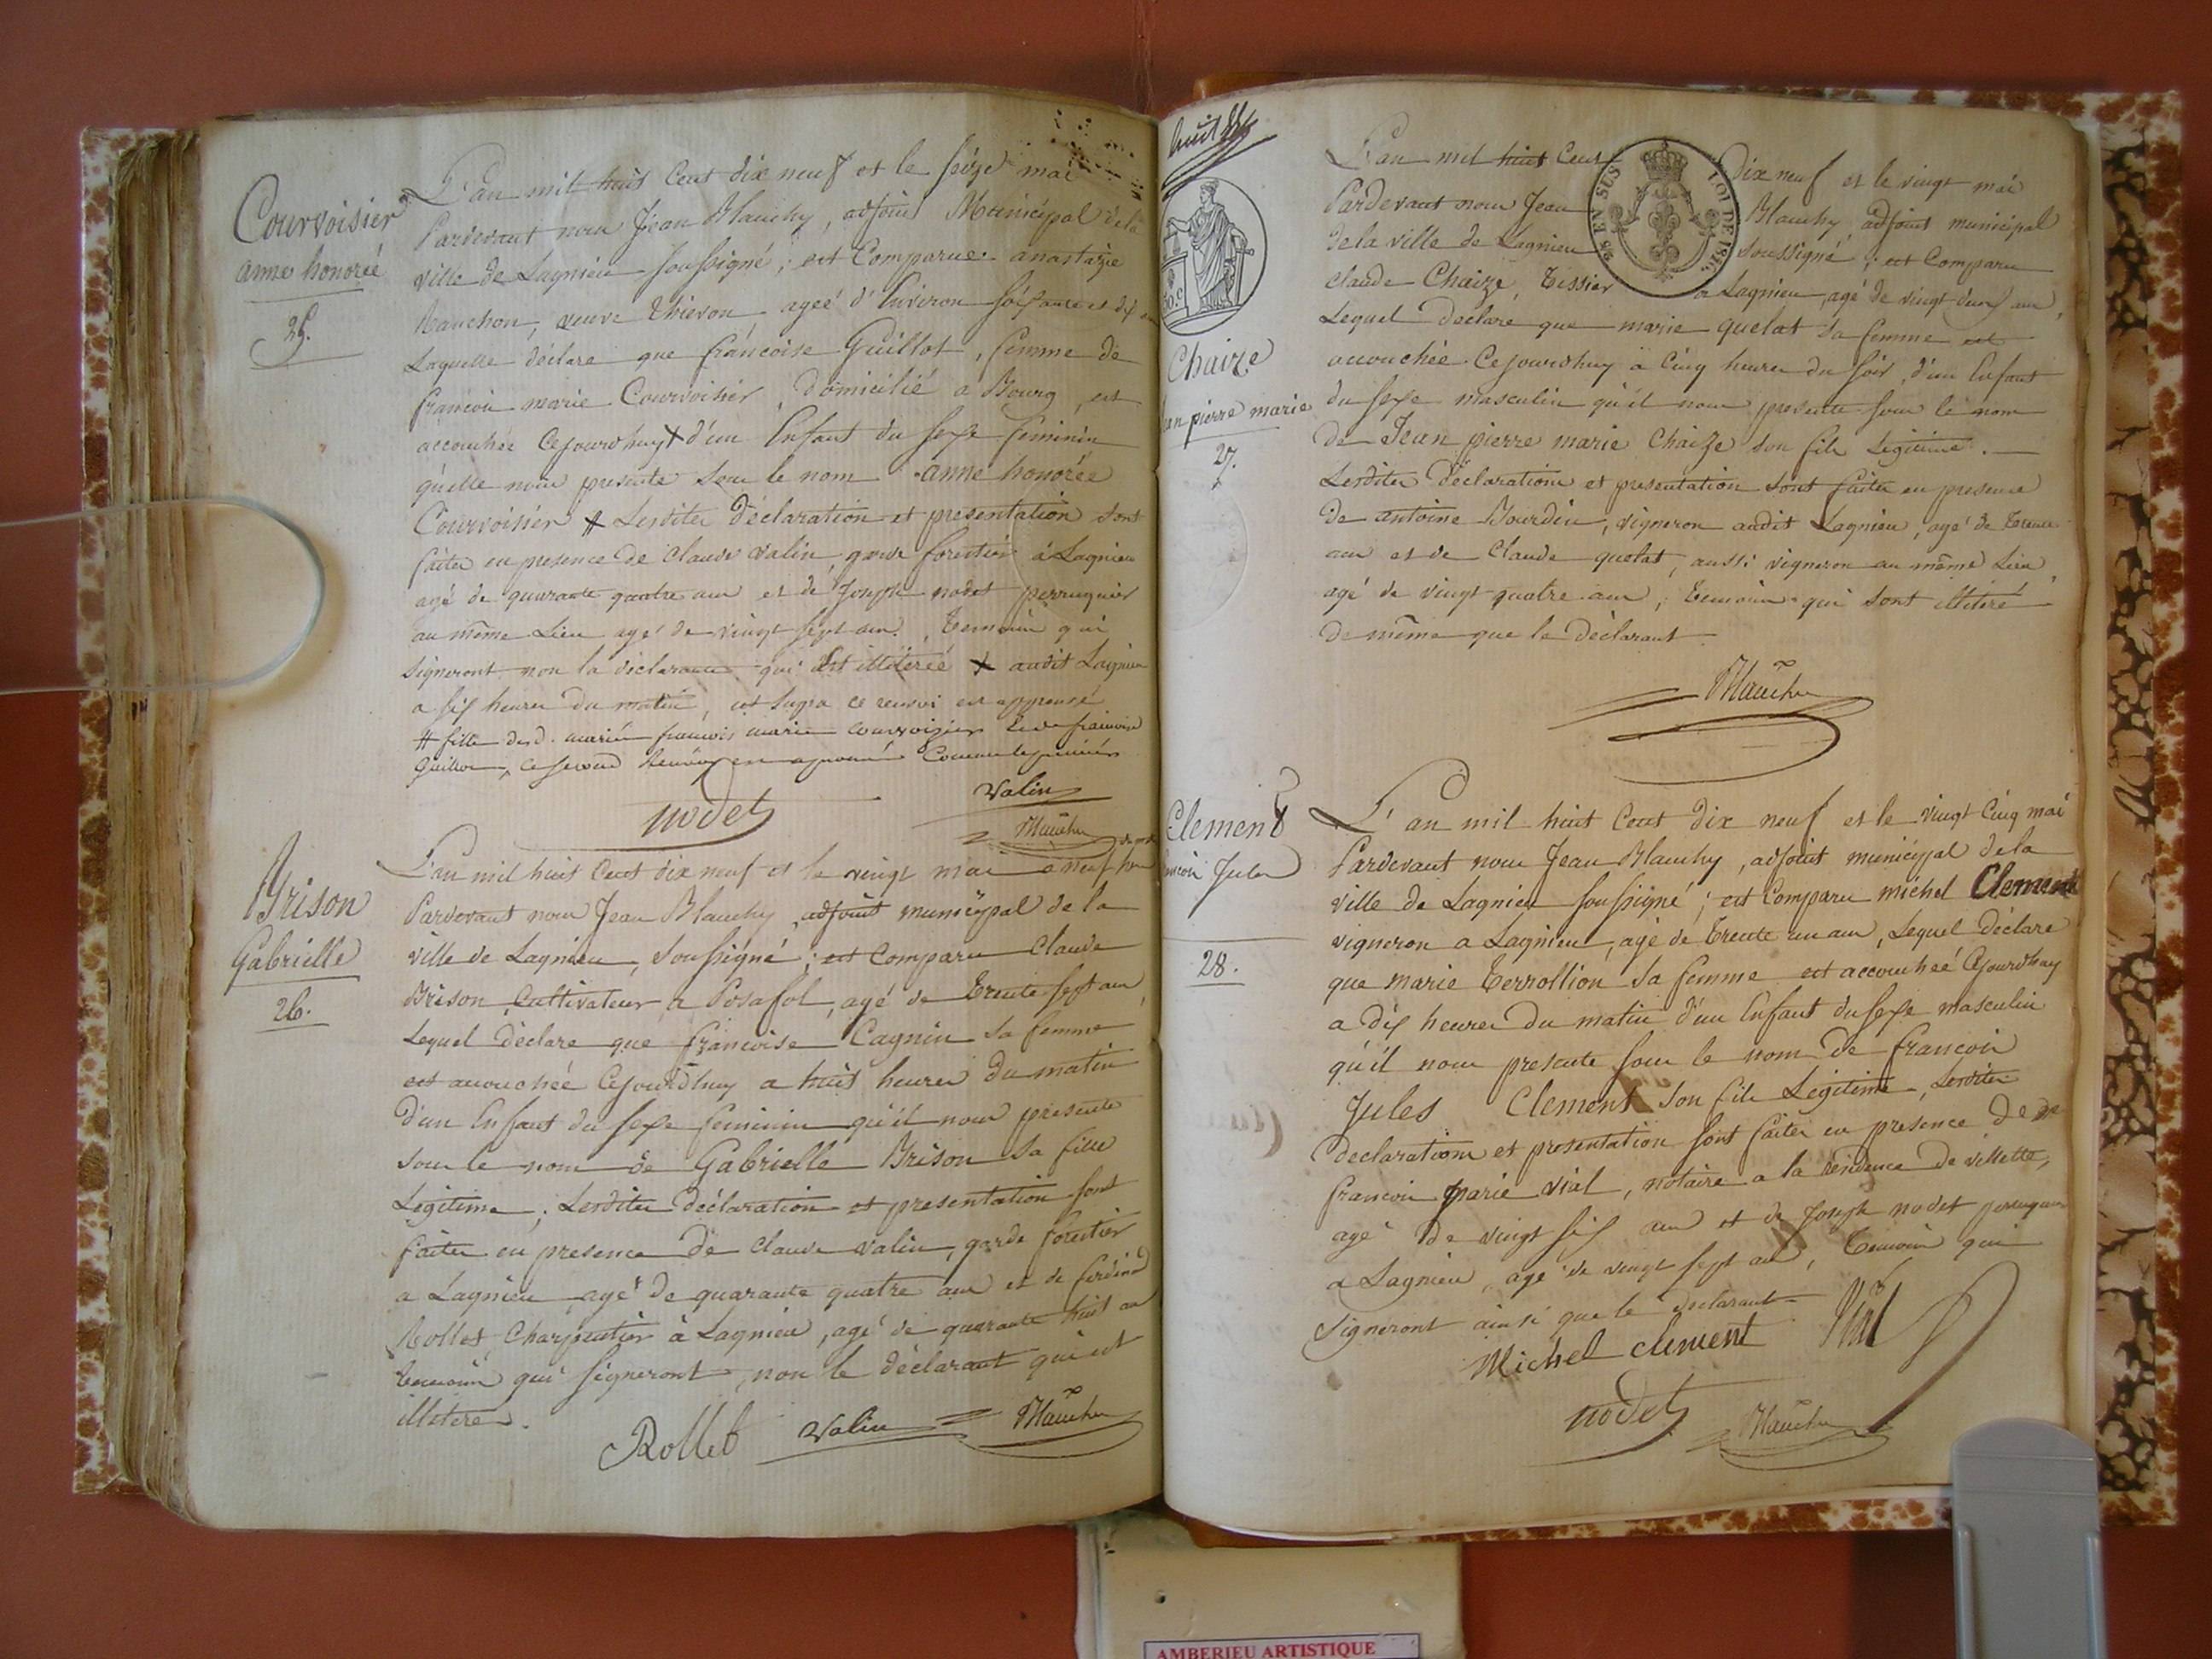 Courvoisier
anne honorée
25.
L'an mil huit Cent dix neuf et le seize mai
Pardevant nous Jean Blanchy, adjoint Municipal de la
ville de Lagnieu soussigné ; est Comparue anastazie
Manchon, veuve Thievon, agée d'Environ soixante et dix ans
Laquelle déclare que francoise Guillot, femme de
francois marie Courvoisier, domicilié a Bourg, est
accouchée Cejourdhuy X d'un Enfant du sexe féminin
qu'elle nous presente sous le nom anne honorée
Courvoisier # Lesdites déclaration et presentation sont
faites en presence de Claude Valin, garde forestier à Lagnieu
agé de quarante quatre ans et de Joseph nodet perruquier
au même Lieu agé de vingt sept ans, Temoins qui
signeront non la déclarante qui est illiterée X audit Lagnieu
a six heures du matin, ut supra ce renvoi est approuvé
# fille des d. mariés francois marie courvoisier et de francoise
guillot, ce second renvoi est aprouvé Comme le premier
nodet
Valin
Blanchy
Brison
Gabrielle
26.
L'an mil huit Cent dix neuf et le vingt mai a neuf heures
Pardevant nous Jean Blanchy, adjoint municipal de la
ville de Lagnieu, soussigné ; est Comparu Claude
Brison, Cultivateur a Posafol, agé de Trente sept ans,
Lequel déclare que francoise Cagnin sa femme
est accouchée Cejourdhuy a huit heures du matin
d'un Enfant du sexe feminin qu'il nous presente
sous le nom de Gabrielle Brison sa fille
Légitime ; Lesdites déclaration et presentation sont
faites en presence de Claude Valin, garde forestier
a Lagnieu agé de quarante quatre ans et de ferdinand
Rollet, Charpentier à Lagnieu, agé de quarante huit ans
temoins qui signeront, non le déclarant qui est
illiteré.
Rollet
Valin
Blanchy
huit
30.c
Chaize
Jean pierre marie
27.
28 EN SUS
LOI DE 1816.
L'an mil huit Cent Dix neuf et le vingt mai
Pardevant nous Jean Blanchy, adjoint municipal
de la ville de Lagnieu soussigné ; est Comparu
Claude Chaize, Tissier a Lagnieu, agé de vingt deux ans,
Lequel déclare que marie quelat sa femme est
accouchée Cejourdhuy a Cinq heures du soir, d'un Enfant
du sexe masculin qu'il nous presente sous le nom
de Jean pierre marie Chaize son fils Légitime.
Lesdites déclarations et presentation sont faites en presence
de antoine Bourdin, vigneron audit Lagnieu, agé de trente
ans et de Claude quelat, aussi vigneron au même Lieu
agé de vingt quatre ans, Temoins qui sont illiteré
de même que le déclarant
Blanchy
Clement
francois Jules
28.
L'an mil huit Cent Dix neuf et le vingt Cinq mai
Pardevant nous Jean Blanchy, adjoint municipal de la
ville de Lagnieu soussigné ; est Comparu michel Clement
vigneron a Lagnieu, agé de Trente un ans, Lequel déclare
que marie Terrollion sa femme est accouchée Cejourdhuy
a dix heures du matin d'un Enfant du sexe masculin
qu'il nous presente sous le nom de francois
Jules Clement son fils Légitime, Lesdites
declarations et presentation sont faites en presence de
francois marie vial, notaire a la residence de villette,
agé de vingt six ans et de Joseph nodet perruquier
a Lagnieu, agé de vingt sept ans, Temoins qui
signeront ainsi que le déclarant
Michel clement
Vial
nodet
Blanchy
AMBERIEU ARTISTIQUE